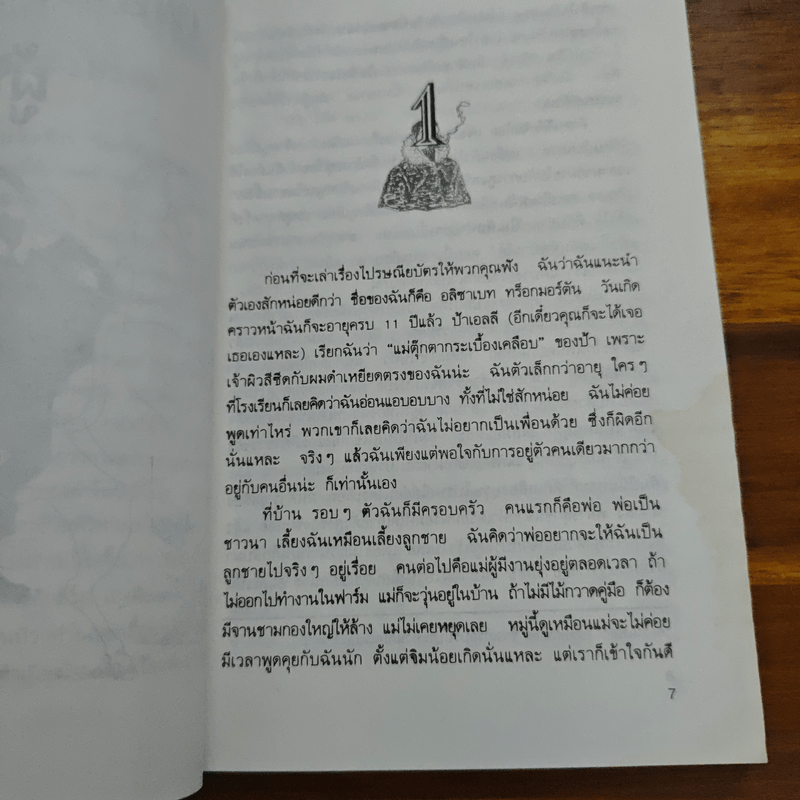 ผี
1
ก่อนที่จะเล่าเรื่องไปรษณียบัตรให้พวกคุณฟัง ฉันว่าฉันแนะนำ
ตัวเองสักหน่อยดีกว่า ชื่อของฉันก็คือ อลิซาเบท ทร็อกมอร์ตัน วันเกิด
คราวหน้าฉันก็จะอายุครบ 11 ปีแล้ว ป้าเอลลี (อีกเดี๋ยวคุณก็จะได้เจอ
เธอเองแหละ) เรียกฉันว่า “แม่ตุ๊กตากระเบื้องเคลือบ” ของป้า เพราะ
เจ้าผิวสีซีดกับผมดำเหยียดตรงของฉันน่ะ ฉันตัวเล็กกว่าอายุ ใครๆ
ที่โรงเรียนก็เลยคิดว่าฉันอ่อนแอบอบบาง ทั้งที่ไม่ใช่สักหน่อย ฉันไม่ค่อย
พูดเท่าไหร่ พวกเขาก็เลยคิดว่าฉันไม่อยากเป็นเพื่อนด้วย ซึ่งก็ผิดอีก
นั่นแหละ จริงๆ แล้วฉันเพียงแต่พอใจกับการอยู่ตัวคนเดียวมากกว่า
อยู่กับคนอื่นน่ะ ก็เท่านั้นเอง
ที่บ้าน รอบๆ ตัวฉันก็มีครอบครัว คนแรกก็คือพ่อ พ่อเป็น
ชาวนา เลี้ยงฉันเหมือนเลี้ยงลูกชาย ฉันคิดว่าพ่ออยากจะให้ฉันเป็น
ลูกชายไปจริงๆ อยู่เรื่อย คนต่อไปคือแม่ผู้มีงานยุ่งอยู่ตลอดเวลา ถ้า
ไม่ออกไปทำงานในฟาร์ม แม่ก็จะวุ่นอยู่ในบ้าน ถ้าไม่มีไม้กวาดคู่มือ ก็ต้อง
มีจานชามกองใหญ่ให้ล้าง แม่ไม่เคยหยุดเลย หมู่นี้ดูเหมือนแม่จะไม่ค่อย
มีเวลาพูดคุยกับฉันนัก ตั้งแต่จิมน้อยเกิดนั่นแหละ แต่เราก็เข้าใจกันดี
7